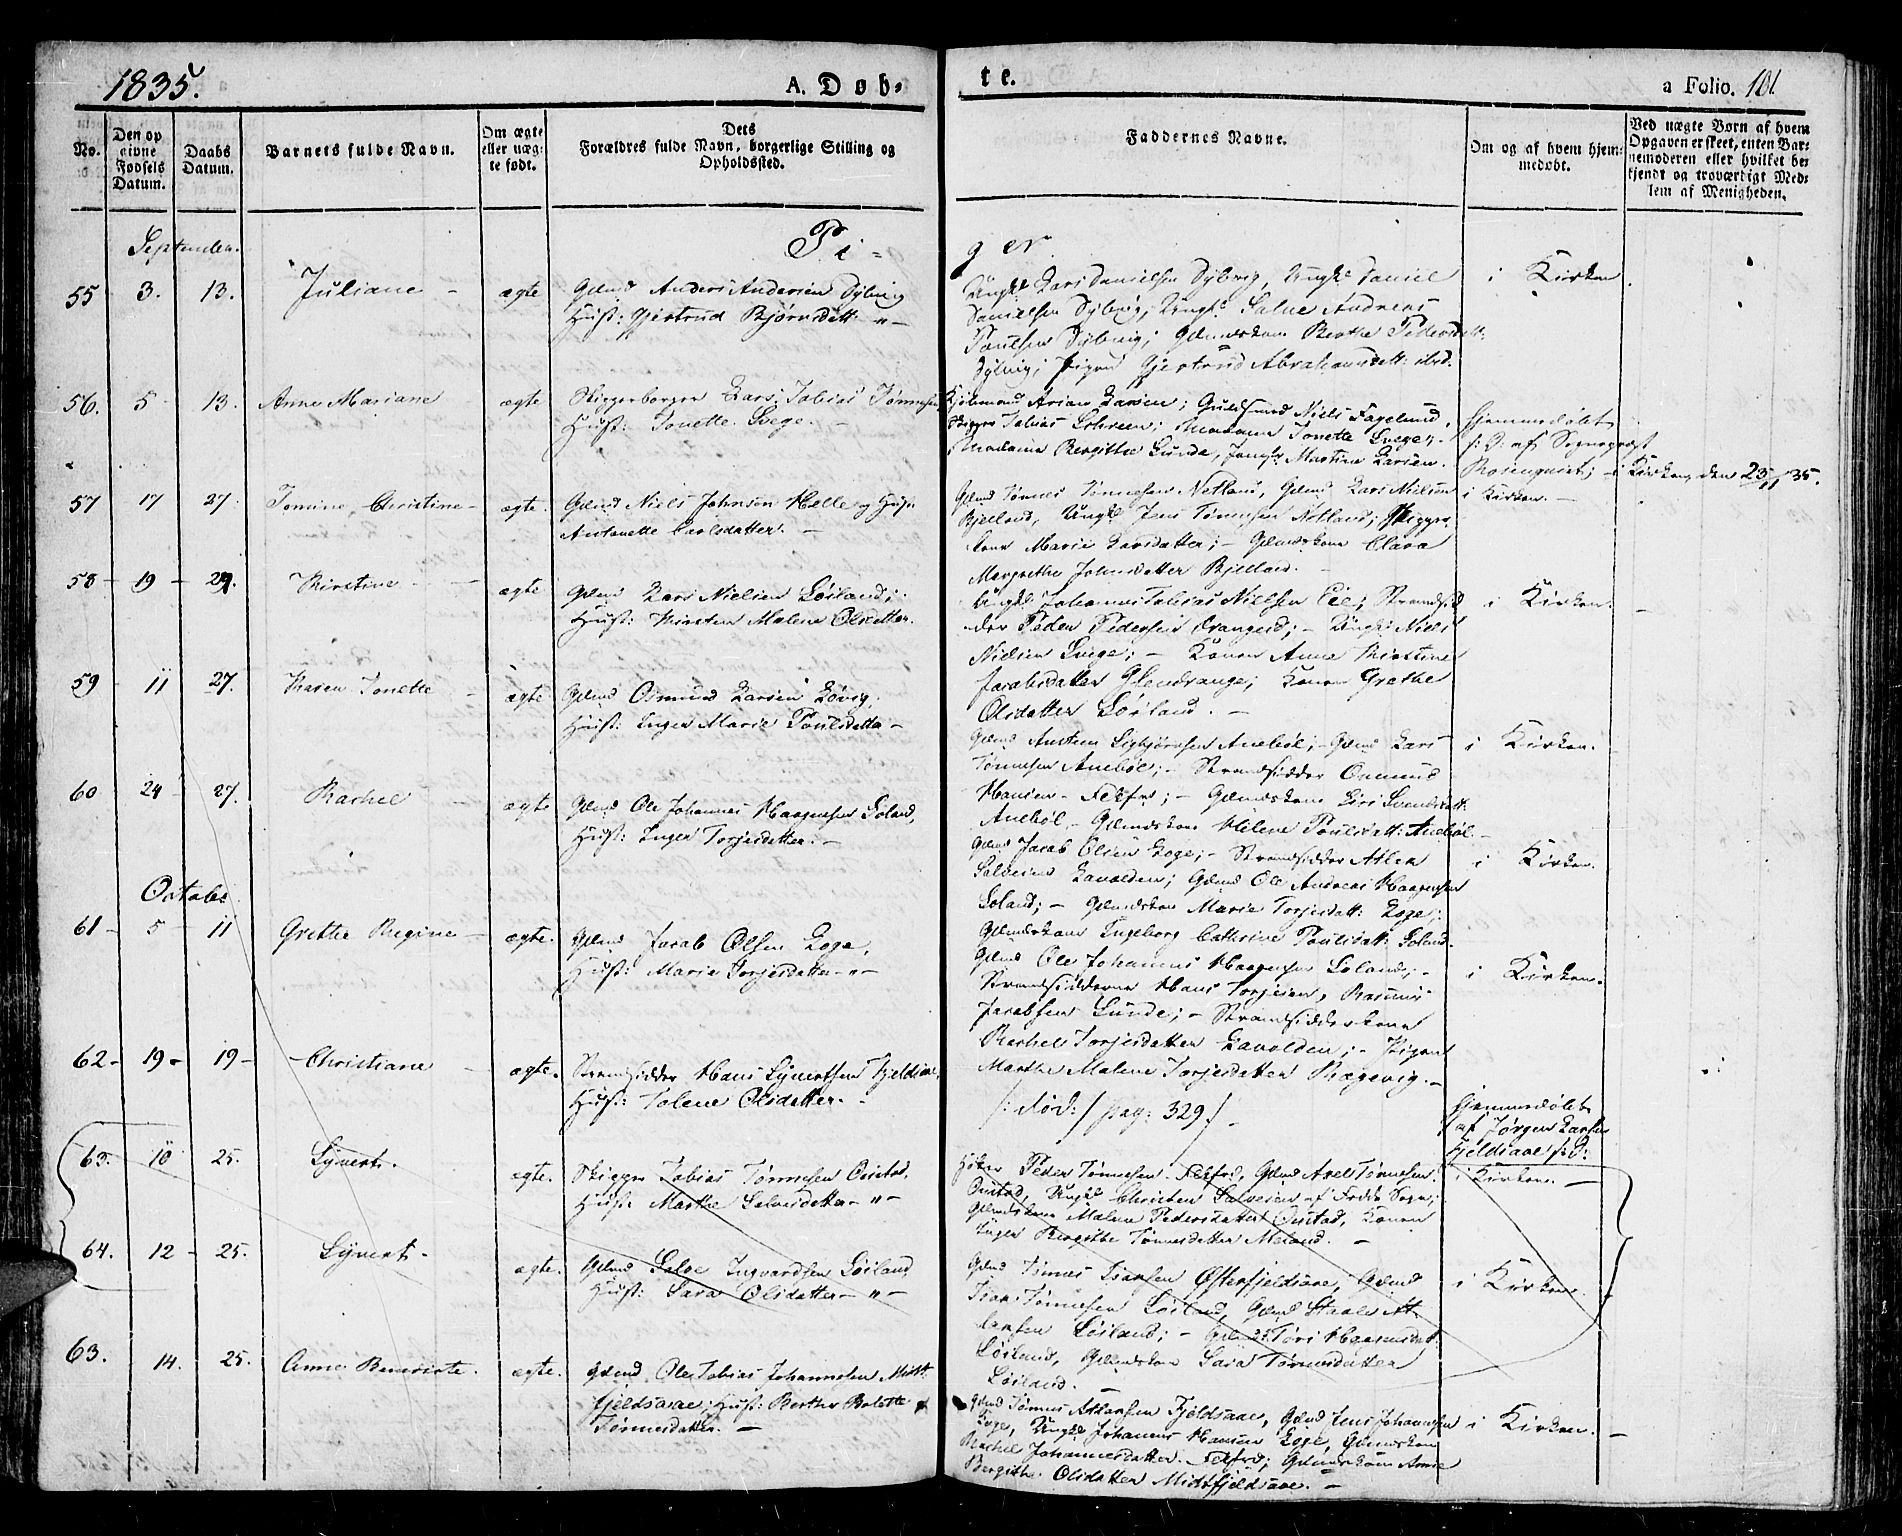 1835.
A. Døb-
te.
a Folio. 101
No.
Den op
givne
Fødsels
Datum.
Daabs
Datum.
Barnets fulde Navn.
Om ægte
eller uæg-
te født.
Dets
Forældres fulde Navn, borgerlige Stilling og
Opholdssted.
Faddernes Navne.
Om og af hvem hjem-
medøbt.
Ved uægte Børn af hvem
Opgaven er skeet, enten Bar-
nemoderen eller hvilket be-
kjendt og troværdigt Med-
lem af Menigheden.
September.
Pi-
ger.
55 3. 13. Juliane - ægte
Glmd Anders Andersen Dybvig
Hust: Gjertrud Bjørnsdatt: -"-
Ungk: Lars Danielsen Dybvig, Ungk: Daniel
Danielsen Dybvig; Ungk: Salve Andreas
Poulsen Dybvig; Glmdskone Berthe Pedersdatt:
Dybvig; Pigen Gjertrud Abrahamsdatt: ibid.
i Kirken
56. 5 - 13. Anne Mariane - ægte
Skipperborger Lars Tobias Tønnesen,
Hust: Tonette Svege. -
Kjøbmand Arian Larsen; Guldsmed Niels Fagelund,
Skipper Tobias ; Madame Tonette Svege;
Madame Bergitthe Lunde, Jomfr Martine Larsen.
hjemmedøbt
f: D: af Sognepræst
Rosenqvist; - i Kirken, den 23/11 35.
57 17 27. Tomine Christine - ægte.
Glmd Niels Johnsen Helle og Hust
Antonette Carlsdatter. -
Glmd Tønnes Tønnesen Netland, Glmd Lars Nielsen
Bjelland, Ungk: Jens Tønnesen Netland; Skipper
kone Marie Larsdatter; - Glmdskone Clara
Margrethe Johnsdatter Bjelland.
i Kirken. -
58 - 19 - 27. Kirstine - ægte
Glmd Lars Nielsen Løiland;
Hust: Kirsten Malene Olsdatter.
Ungk: Johannes Tobias Nielsen Eie; Strandsid
der Peder Pedersen Drangeid; - Ungk: Niels
Nielsen Svege; - Konen Anne Kirstine
Jacobsdatter Glendrange; Konen Grethe
Olsdatter Løiland. -
i Kirken. -
59 - 11 27. Karen Tonette - ægte
Glmd Osmund Larsen Løvig,
Hust: Inger Marie Poulsdatter -
Glmd Austen Sigbjørnsen Anebøl; - Glmd Lars
Tønnesen Anebøl; - Strandsidder Osmund
Hansen - ; - Glmdskone Siri Svendsdatt:
Anebøl - Glmdskone Helene Poulsdatt: Anebøl. -
i Kirken.
60 24 - 27. Rachel - ægte
Glmd Ole Johannes Haagensen Soland,
Hust: Inger Torjesdatter. -
Glmd Jacob Olsen Loge; - Strandsidder Atlen
Salvesen Lavolden; Glmd Ole Andreas Haagensen
Soland; - Glmdskone Marie Torjesdatt: Loge;
Glmdskone Ingeborg Cathrine Poulsdatt: Soland.
i Kirken.
October
61 - 5 - 11 Grethe Regine - ægte.
Glmd Jacob Olsen Loge,
Hust: Marie Torjesdatter -"-
Glmd Ole Johannes Haagensen Soland; -
Strandsidderne Hans Torjesen, Rasmus
Jacobsen Lunde; - Strandsidderkone
Rachel Torjesdatter Lavolden; - Pigen
Marthe Malene Torjesdatter Rægevig. -
i Kirken.
62 - 19 - 19 - Christiane - ægte.
Strandsidder Hans Synertsen Fjeldsaa,
Hust: Tolene Olsdatter. -
/: død: / pag: 329 / -
hjemmedøbt
af Jørgen Larsen
Fjeldsaae f: D:
63. 10 25. Synert. ægte.
Skipper Tobias Tønnesen Onstad,
Hust: Marthe Salvesdatter -"-
Peder Tønnesen , Glmd Axel Tønnesen
Onstad, Ungk: Christen Salvesen af Sogn;
Glmdskone Malene Pedersdatter Onstad, Konen
Inger Bergitthe Tønnesdatter Meland. -
i Kirken. -
64. 12 - 25. Synert. ægte.
Glmd Salve Ingvardsen Løiland
Hust: Sara Olsdatter -"-
Glmd Tønnes Isaksen Østerfjeldsaae, Glmd
Isac Tønnesen Løiland, Glmd Staale At
lansen Løiland; - Glmdsk: Tøri Haagensdatt:
Løiland, Glmdskone Sara Tønnesdatter
Løiland.
i Kirken.
63. 14. 25. Anne Benedicte. ægte.
Glmd Ole Tobias Johannesen Midt
fjeldsaae, Hust: Berthe Bolette
Tønnesdatter. -
Glmd Tønnes Atlansen Fjeldsaae, Glmd Jens Johannesen
Svege, Ungk: Johannes Hansen Loge, Glmdskone
Rachel Johannesdatter. ; Glmdskone Anne
Bergithe Olsdatter Midtfjeldsaae. -
i Kirken. -